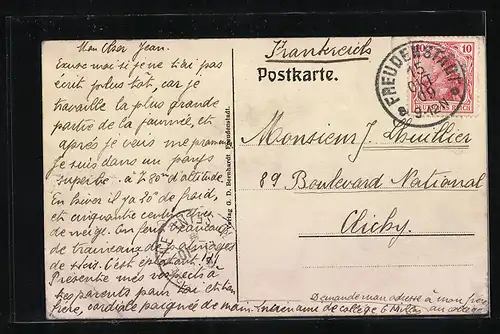 Mon cher Jean.
Excuse moi si je ne t'ai pas
écrit plus tôt, car je
travaille la plus grande
partie de la journée, et
après je vais me promener
je suis dans un pays
superbe à 780m d'altitude.
En hiver il y a 20° de froid,
et cinquante centimètres
de neige. On fera beaucoup
de traineaux de patinages
de skis. C'est épatant!
Présente mes respects à
tes parents pour toi et ton
frère, cordiale poignée de main.
ancien ami de collège
Demande mon adresse à mon frère
au collège
Verlag G. D. Bernhardt Freudenstadt.
Frankreich
Postkarte.
Monsieur J. Lhuillier
89 Boulevard National
Clichy
FREUDENSTADT
15
OKT
08
9-12
10
10